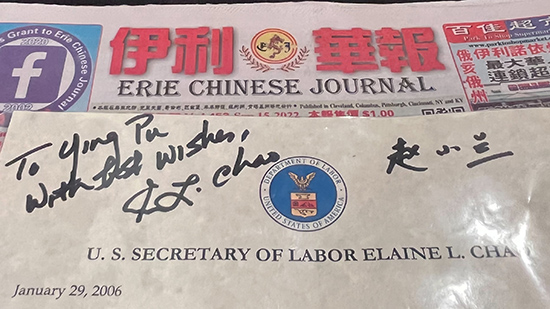 's Grant to Erie Chinese Journal
2020
f
2022
伊利 華報
ERIE CHINESE JOURNAL
百佳超
www.parktoshop
俄亥俄州
伊利諾依
最大華
連鎖超
Published in Cleveland, Columbus, Pittsburgh, Cincinnati, NY and KY
15 2022 本報售價 $1.00
To Ying Pu
With Best Wishes,
E L. Chao
赵小兰
DEPARTMENT OF LABOR
UNITED STATES OF AMERICA
U. S. SECRETARY OF LABOR ELAINE L. CHAO
January 29, 2006